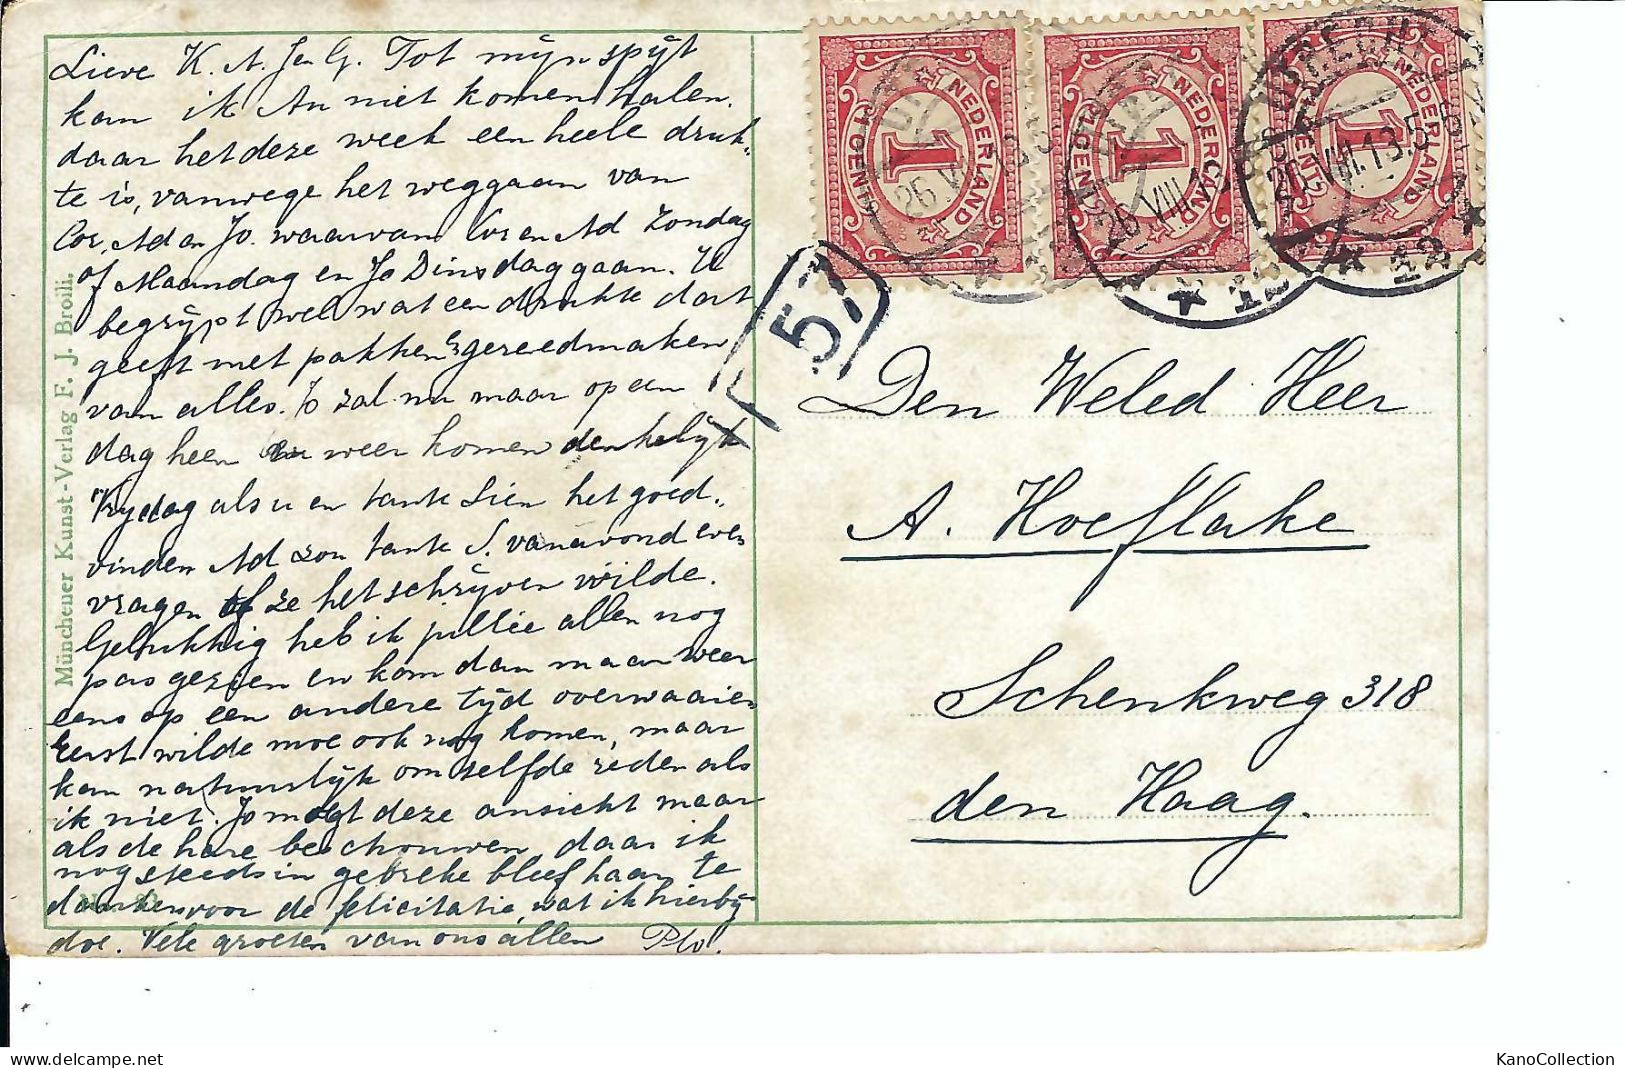 Lieve K. A. J en G. Tot mijn spijt
kan ik An niet komen halen,
daar het deze week een heele druk-
te is, vanwege het weggaan van
Cor, Ad en Jo. waarvan Cor en Ad Zondag
of Maandag en Jo Dinsdag gaan. U
begrijpt wel wat een drukte dat
geeft met pakken & gereedmaken
van alles. Jo zal nu maar op een
dag heen en weer komen denkelijk
Vrijdag als u en tante Lien het goed-
vinden Ad zou tante L. vanavond even
vragen of ze het schrijven wilde.
Gelukkig heb ik jullie allen nog
pas gezien en kom dan maar weer
eens op een andere tijd overwaaien
Eerst wilde moe ook nog komen, maar
kan natuurlijk om zelfde reden als
ik niet. Jo mogt deze ansicht maar
als de hare beschouwen daar ik
nog steeds in gebreke bleef haar te
danken voor de felicitatie, wat ik hierbij
doe. Vele groeten van ons allen
Münchener Kunst-Verlag F. J. Broili.
NEDERLAND
1
1 CENT
NEDERLAND
1
1 CENT
NEDERLAND
1
1 CENT
UTRECHT
26 VIII 13.5
57
Den Weled Heer
A. Hoeflake
Schenkweg 318
den Haag.
KanoCollection